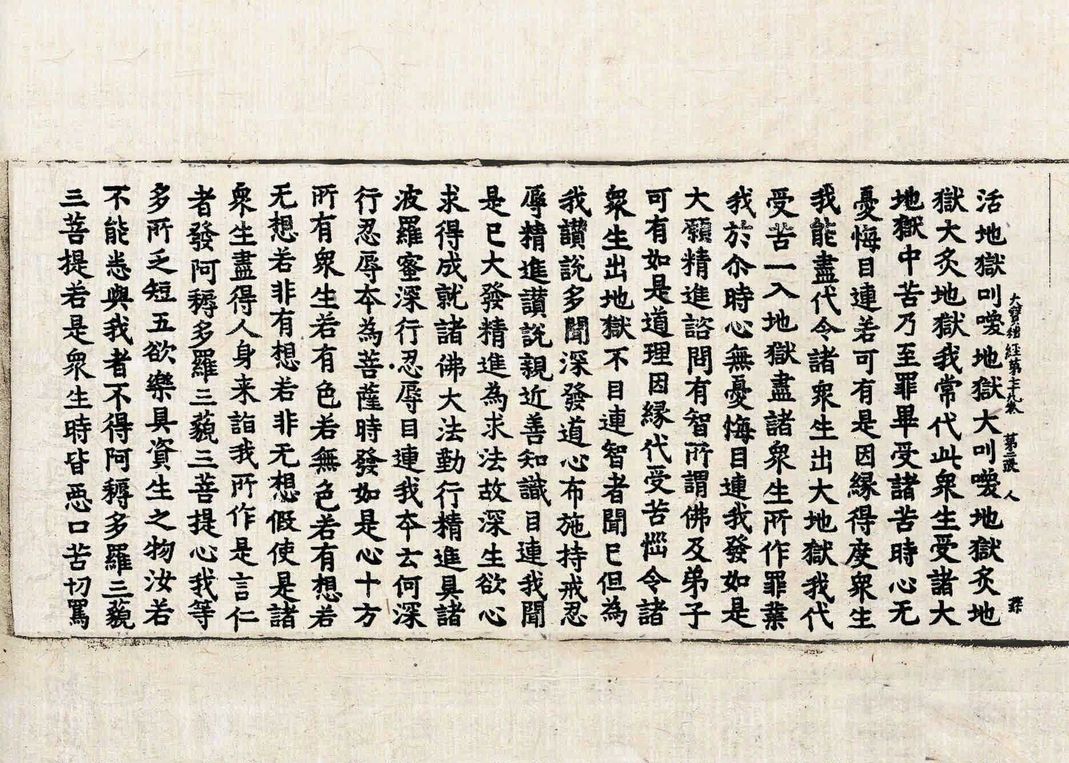 大寶積經第七十九卷 第二張 人
活地獄叫喚地獄大叫喚地獄炙地
獄大炙地獄我常代此衆生受諸大
地獄中苦乃至罪畢受諸苦時心无
憂悔目連若可有是因縁得度衆生
我能盡代令諸衆生出大地獄我代
受苦一入地獄盡諸衆生所作罪業
我於尒時心無憂悔目連我發如是
大願精進諮問有智所謂佛及弟子
可有如是道理因縁代受苦惱令諸
衆生出地獄不目連智者聞已但為
我讃說多聞深發道心布施持戒忍
辱精進讃說親近善知識目連我聞
是已大發精進為求法故深生欲心
求得成就諸佛大法勤行精進具諸
波羅蜜深行忍辱目連我本云何深
行忍辱本為菩薩時發如是心十方
所有衆生若有色若無色若有想若
无想若非有想若非无想假使是諸
衆生盡得人身来詣我所作是言仁
者發阿耨多羅三藐三菩提心我等
多所乏短五欲樂具資生之物汝若
不能悉與我者不得阿耨多羅三藐
三菩提若是衆生時皆惡口苦切罵